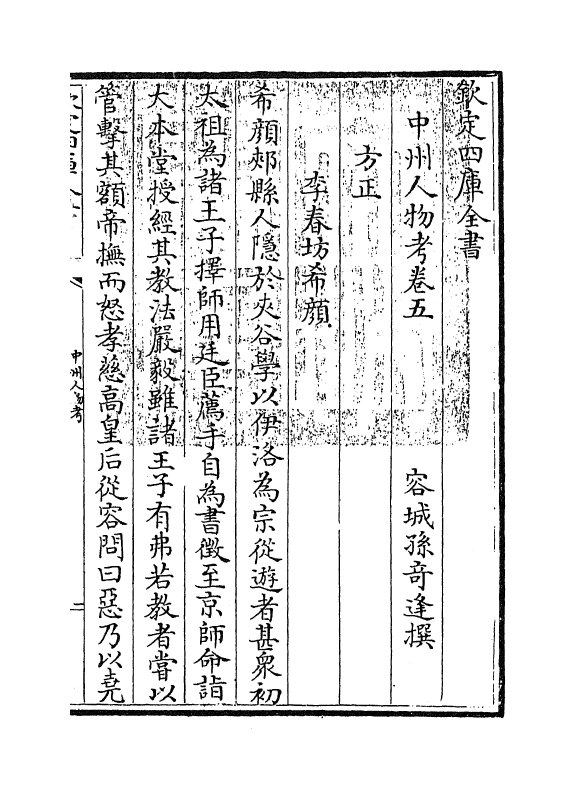 欽定四庫全書
中州人物考卷五
容城孫奇逢撰
方正
李春坊希顔
希顔郟縣人隱於夾谷學以伊洛為宗從遊者甚衆初
太祖為諸王子擇師用廷臣薦手自為書徵至京師命詣
大本堂授經其教法嚴毅雖諸王子有弗若教者嘗以
管擊其額帝撫而怒孝慈高皇后從容問曰惡乃以堯
中州人物考
二